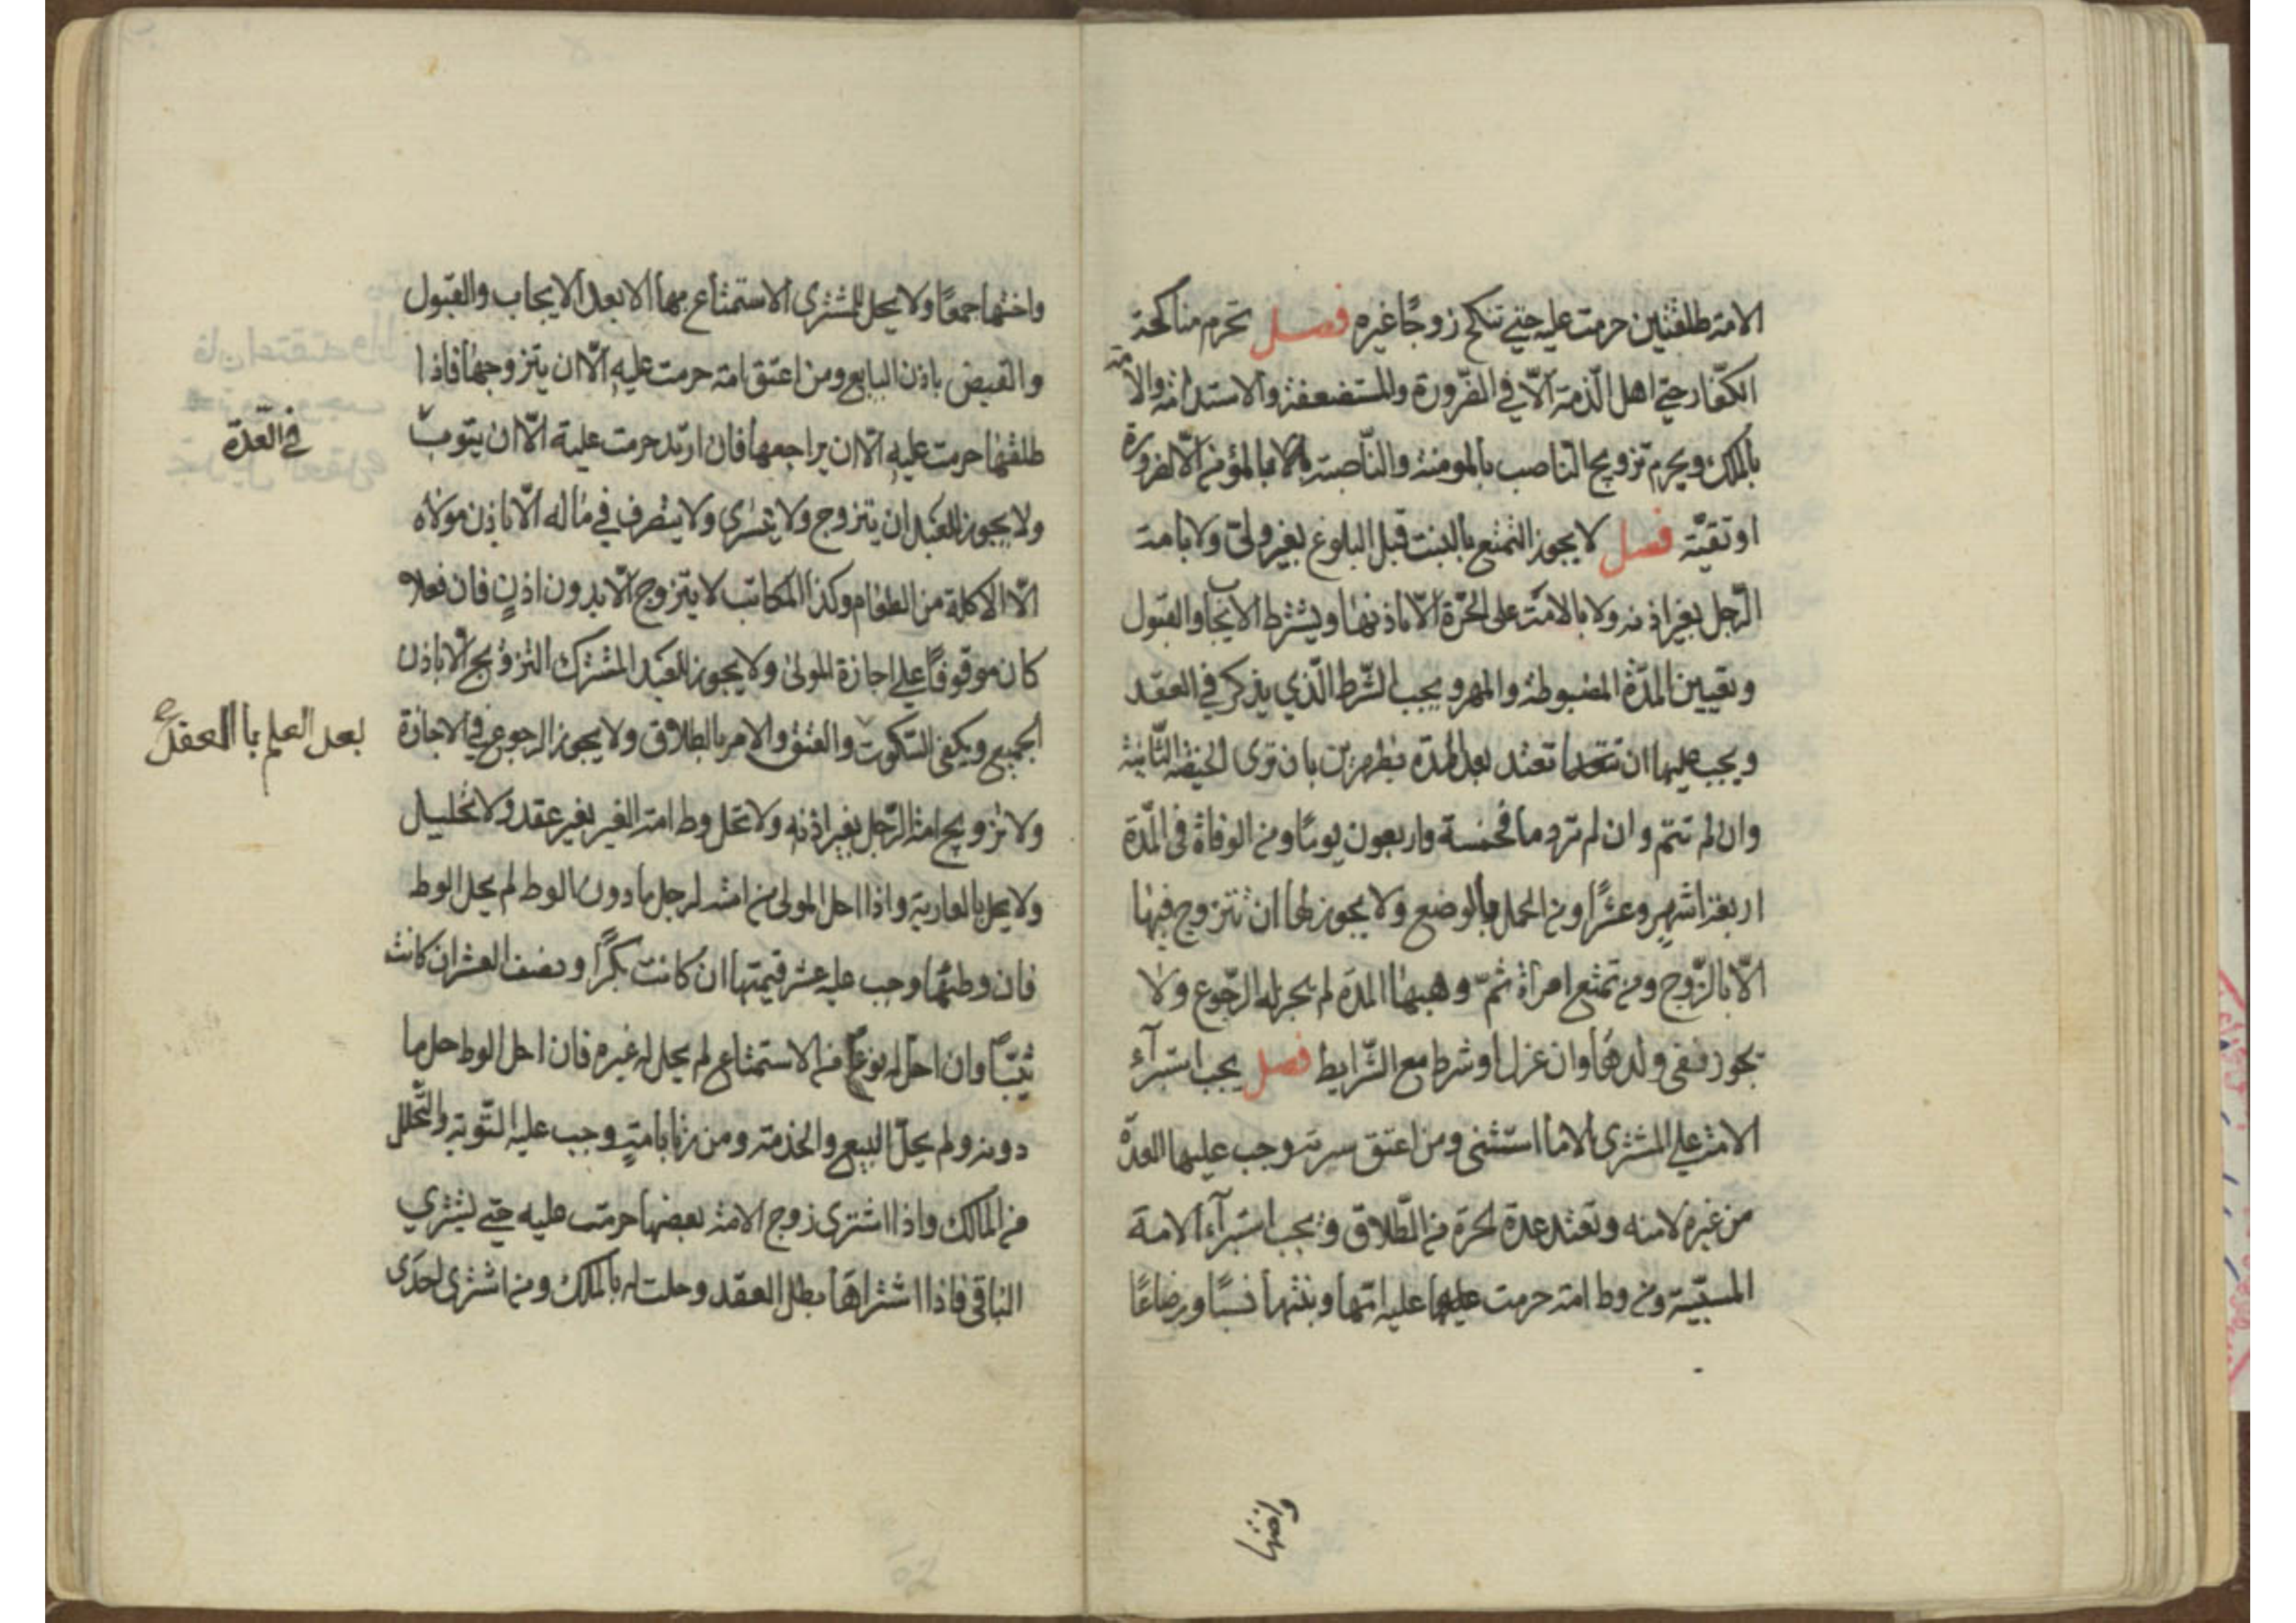 الامة طلقتين حرمت عليه حتى تنكح زوجًا غيره فصل تحرم مناكحة
الكفّار حتى اهل الذّمة الّا في الضّرورة والمستضعفة والاستدامة والامة
بالملك ويحرم تزويج الناصب بالمومنة والنّاصبة بالمؤمن الّا لضرورة
او تقيّة فصل لا يجوز التمتع بالبنت قبل البلوغ بغير ولىّ ولا بامة
الرّجل بغير اذنه ولا بالامة على الحرّة الّا باذنها ويشترط الايجاب والقبول
وتعيين المدّة المضبوطة والمهر ويجب الشّرط الّذي يذكر في العقد
ويجب عليها ان تعتد بعد المدة بطهرين بان ترى الحيضة الثّانية
وان لم تتم وان لم تر دما فخمسة واربعون يومًا ومن الوفاة فى المدّة
اربعة اشهر وعشرًا ومن الحمل بالوضع ولا يجوز لها ان تتزوج فيها
الّا بالزّوج ومن تمتع امراة ثمّ وهبها المدة لم يجز له الرّجوع ولا
يجوز نفى ولدها وان عزل او شرط مع الشّرايط فصل يجب استبرآء
الامة على المشترى الا ما استثنى ومن اعتق سريته وجب عليها العدّة
من غيره لا منه وتعتد عدة الحرة من الطّلاق ويجب استبرآء الامة
المسبيّة ومن وطا امته حرمت عليه امّها وبنتها نسبًا ورضاعًا
واختها
واختها جمعًا ولا يحل للمشترى الاستمتاع بها الا بعد الايجاب والقبول
والقبض باذن البايع ومن اعتق امته حرمت عليه الّا ان يتزوجها فاذا
طلقها حرمت عليه الّا ان يراجعها فان ارتد حرمت عليه الّا ان يتوب
في العدّة
ولا يجوز للعبد ان يتزوج ولا يتسرى ولا يتصرف في ماله الّا باذن مولاه
الّا الاكلة من الطعام وكذا المكاتب لا يتزوج الّا بدون اذن فان فعلا
كان موقوفًا على اجازة المولى ولا يجوز للعبد المشترك التزويج الّا باذن
الجميع ويكفى السّكوت والعتق والامر بالطلاق ولا يجوز الرجوع في الاجازة
بعد العلم باالعقد
ولا تزويج امة الرّجل بغير اذنه ولا تحل وطا امة الغير بغير عقد ولا تحليل
ولا يحل بالعارية واذا احل المولى من امته لرجل ما دون الوط لم يحل الوط
فان وطئها وجب عليه عشر قيمتها ان كانت بكرًا ونصف العشر ان كانت
ثيّبًا وان احل له نوعًا من الاستمتاع لم يحل له غيره فان احل الوط حل ما
دونه ولم يحلّ البيع والخدمة ومن زنا بامةٍ وجب عليه التّوبة والتّحلل
من المالك واذا اشترى زوج الامة بعضها حرمت عليه حتى يشتري
الباقى فاذا اشتراها بطل العقد وحلت له بالملك ومن اشترى احدى